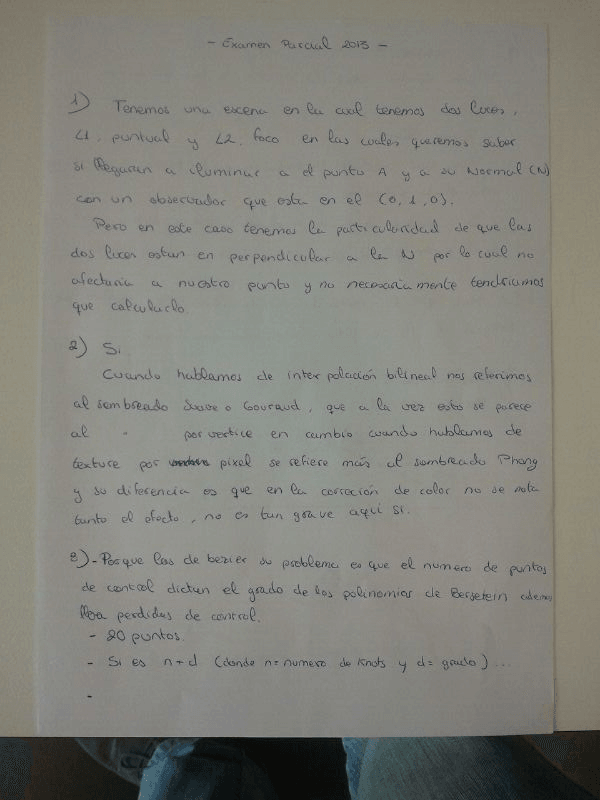 - Examen Parcial 2013 -
1) Tenemos una escena en la cual tenemos dos luces,
L1, puntual y L2, foco en las cuales queremos saber
si llegaran a iluminar a el punto A y a su Normal (N)
con un observador que esta en el (0,1,0).
Pero en este caso tenemos la particularidad de que las
dos luces estan en perpendicular a la N por lo cual no
afectaria a nuestro punto y no necesariamente tendriamos
que calcularlo.
2) Si
Cuando hablamos de interpolación bilineal nos referimos
al sombreado Suave o Gouraud, que a la vez estos se parece
al " por vertice en cambio cuando hablamos de
texture por pixel se refiere más al sombreado Phong
y su diferencia es que en la correción de color no se nota
tanto el efecto, no es tan grave aquí si.
3) - Porque las de bezier su problema es que el numero de puntos
de control dictan el grado de los polinomios de Berstein ademas
perdidas de control.
- 20 puntos.
- Si es n+d (donde n=numero de knots y d= grado)...
-